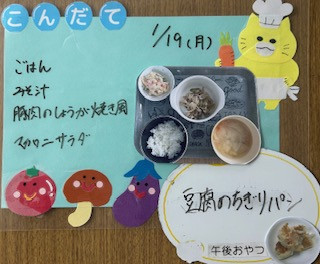 こんだて
1/19(月)
ごはん
みそ汁
豚肉のしょうが焼き風
マカロニサラダ
豆腐のちぎりパン
午後おやつ